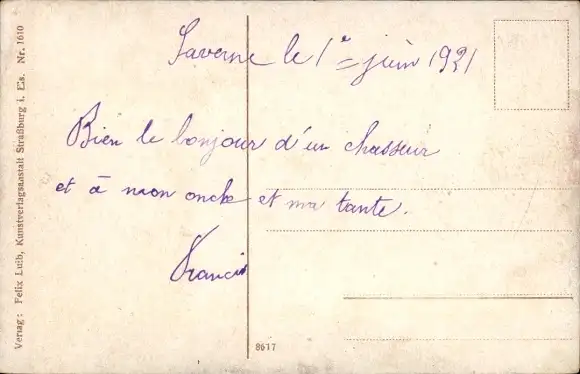 Saverne le 1e juin 1921
Bien le bonjour d'un chasseur
et à mon oncle et ma tante.
Francis
8617
Verlag: Felix Luib, Kunstverlagsanstalt Straßburg i. Els. Nr. 1610